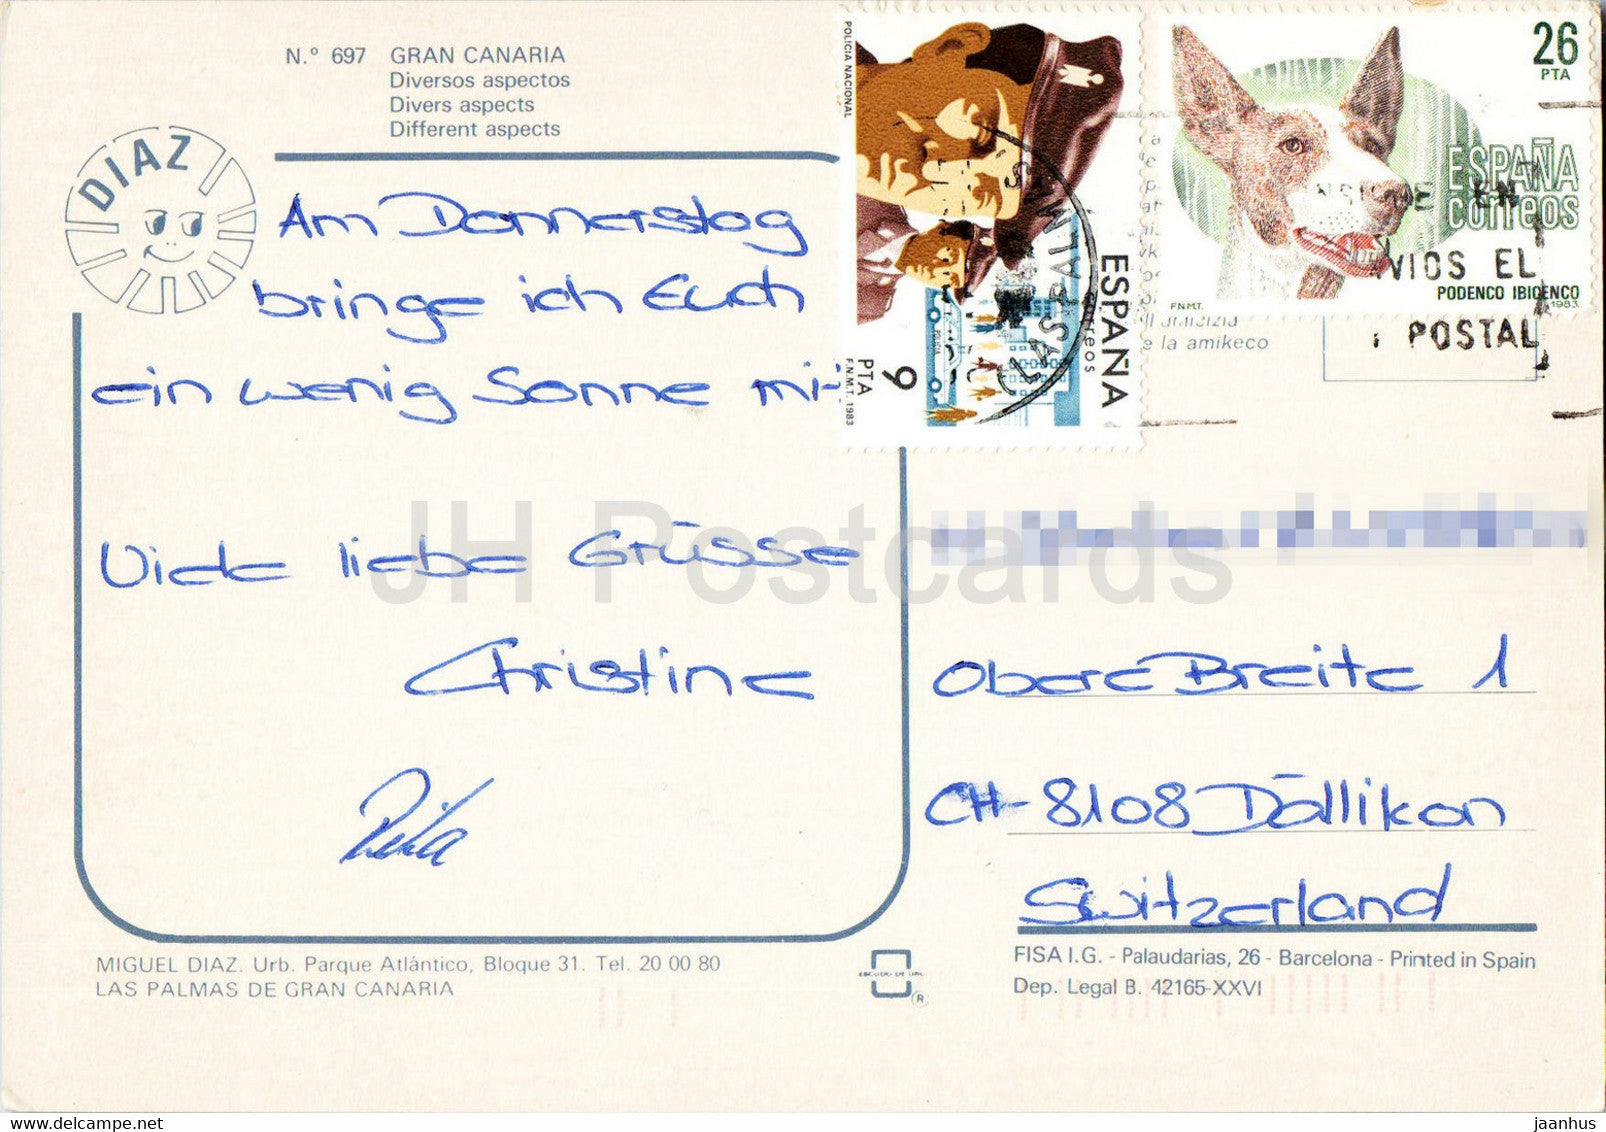 N.º 697 GRAN CANARIA
Diversos aspectos
Divers aspects
Different aspects
DIAZ
Am Donnerstag
bringe ich Euch
ein wenig Sonne mit
Viele liebe Grüsse
Christine
Rita
MIGUEL DIAZ. Urb. Parque Atlántico, Bloque 31. Tel. 20 00 80
LAS PALMAS DE GRAN CANARIA
ESCUDO DE ORO
®
POLICIA NACIONAL
ESPAÑA
correos
9
PTA
F.N.M.T. 1983
POLICIA
26
PTA
ESPAÑA
correos
PODENCO IBICENCO
F.N.M.T.
1983
EN
VIOS EL
POSTAL
amicizia
e la amikeco
JH Postcards
Obere Breite 1
CH-8108 Dällikon
Switzerland
FISA I.G. - Palaudarias, 26 - Barcelona - Printed in Spain
Dep. Legal B. 42165-XXVI
jaanhus